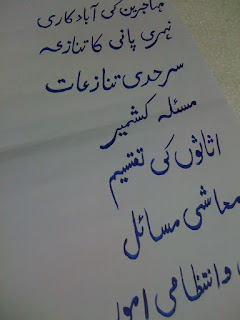 مہاجرین کی آبادکاری
نہری پانی کا تنازعہ
سرحدی تنازعات
مسئلہ کشمیر
اثاثوں کی تقسیم
معاشی مسائل
و انتظامی امور